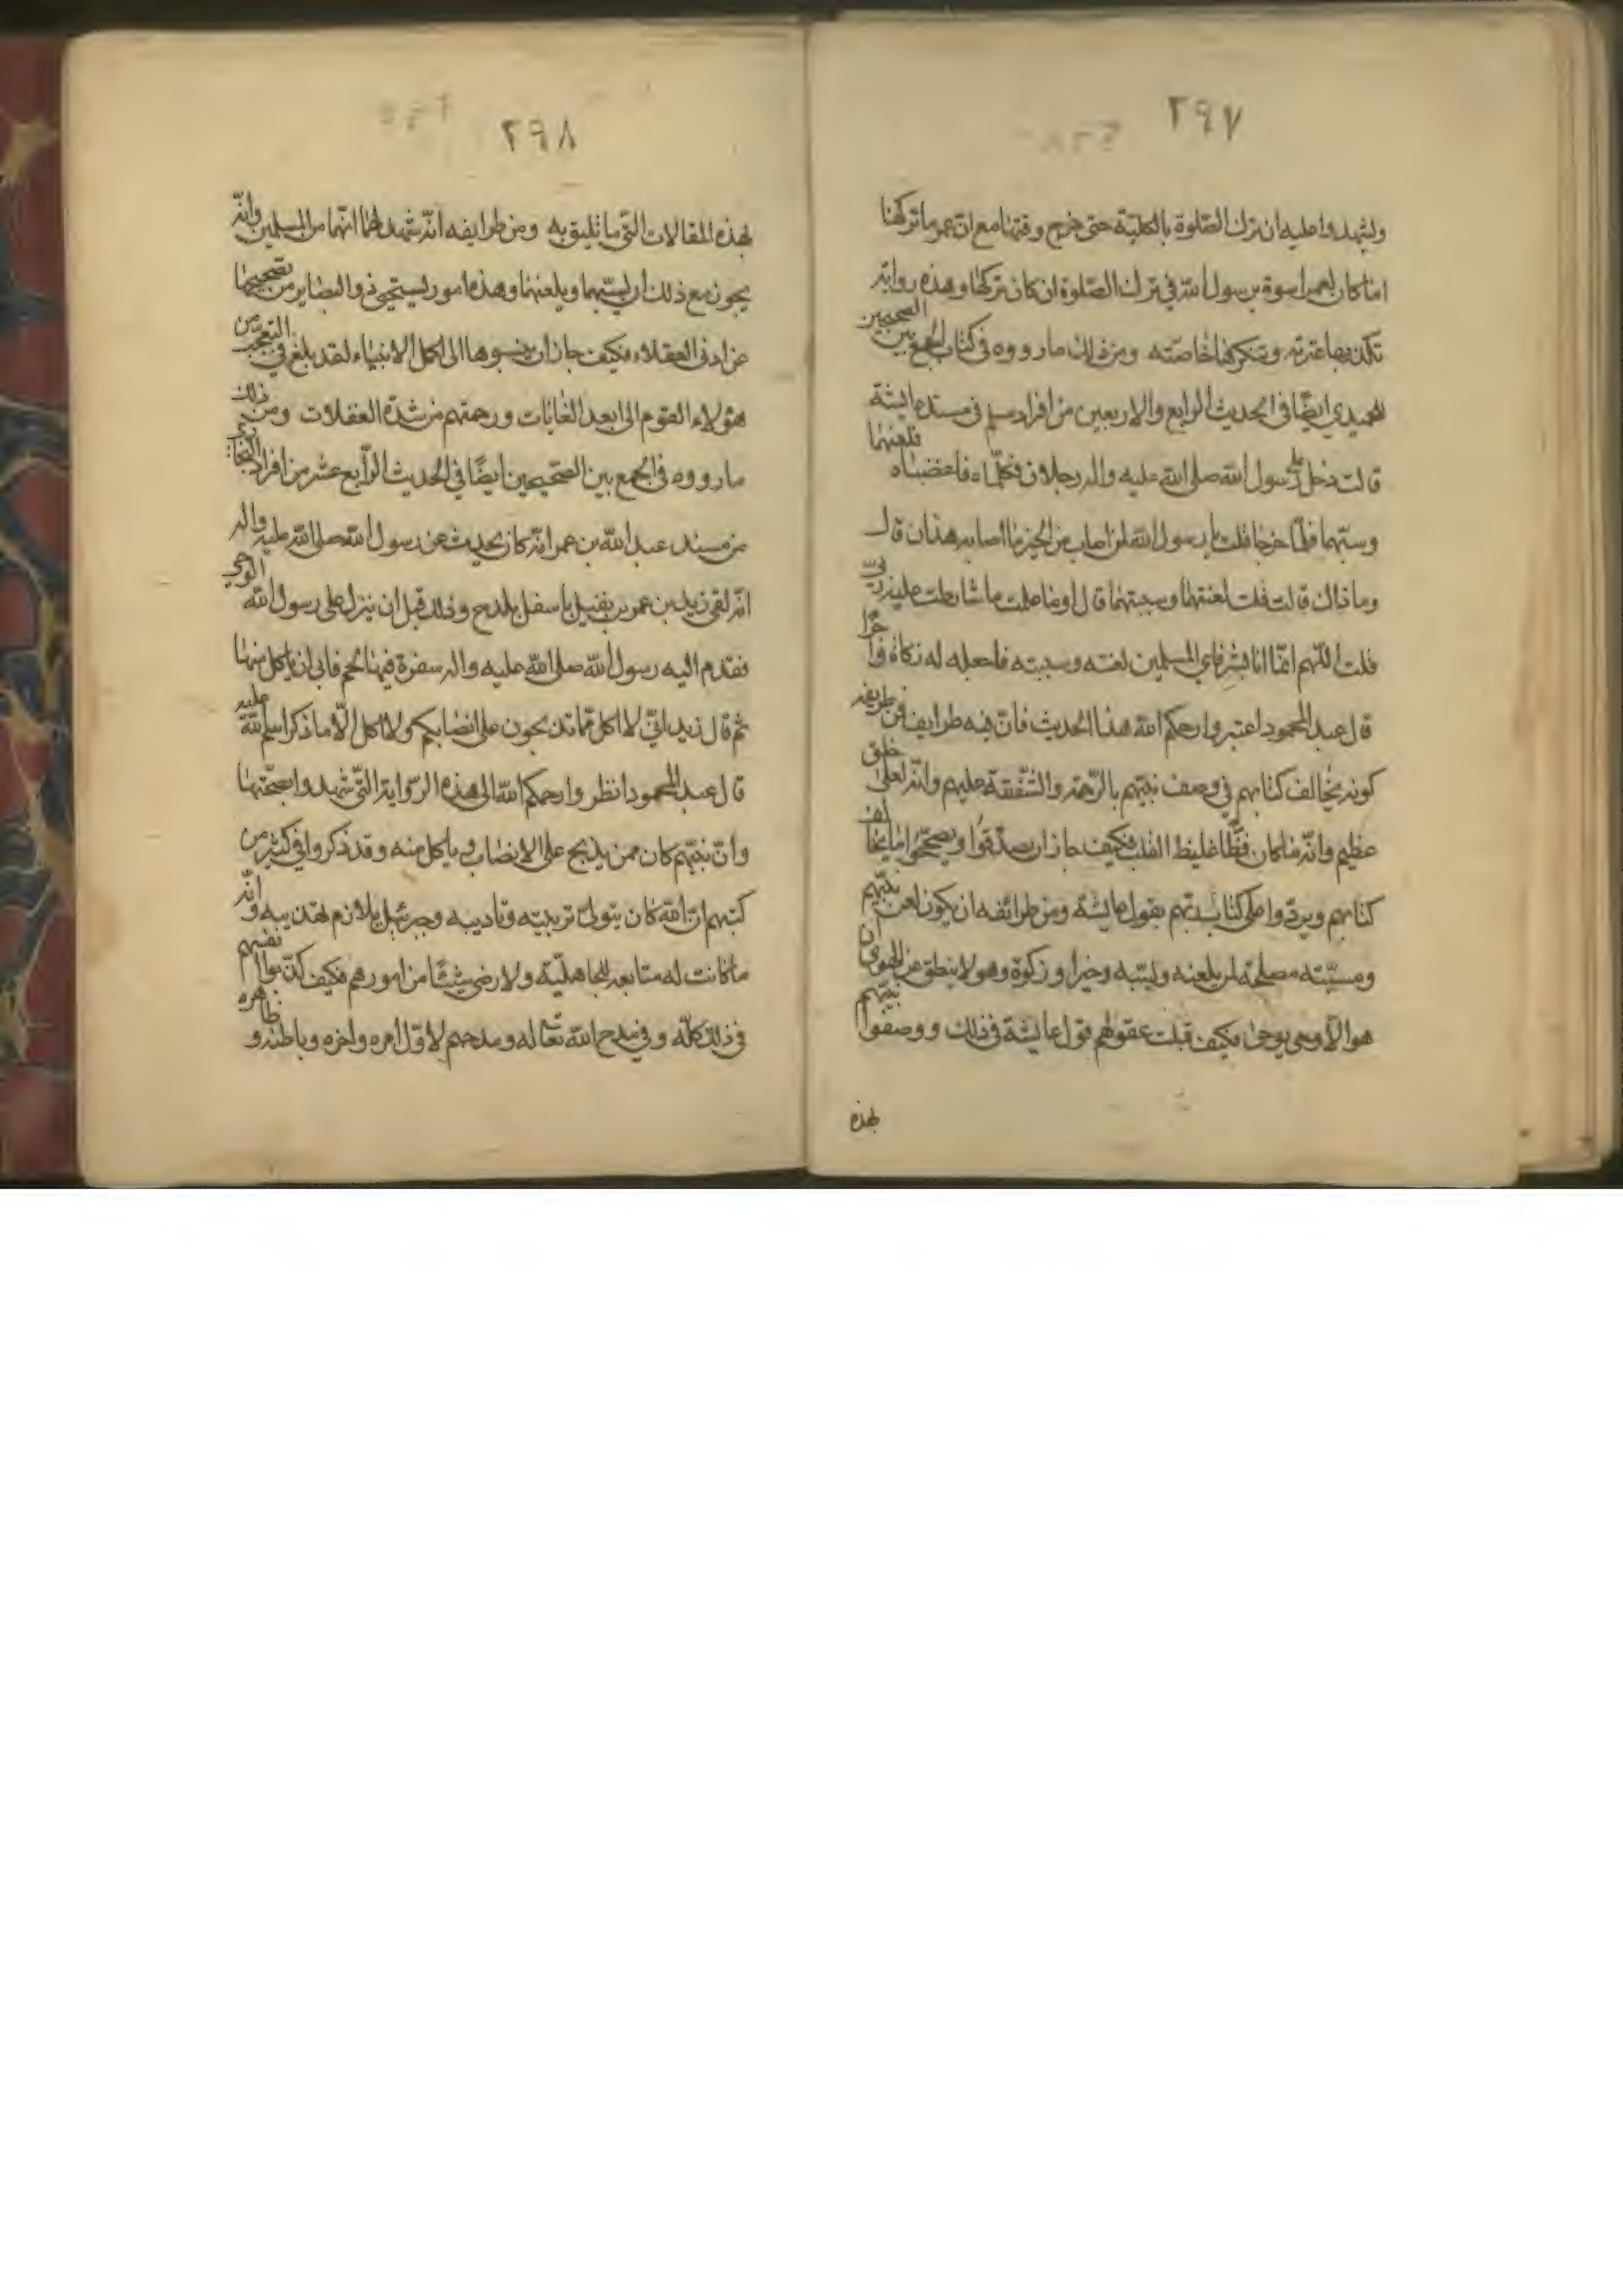 ٢٩٧
وليشهدوا عليه ان ترك الصّلوة بالكليّة حتى خرج وقتها مع انّ عمر ما تركها
اما كان لعمر اسوة برسول الله في ترك الصّلوة ان كان تركها وهذه رواية
تكذبها عترته وتنكرها خاصّته ومن ذلك ما رووه في كتاب الجمع بين الصحيحين
للحميدي ايضًا في الحديث الرابع والاربعين من افراد مسلم في مسند عايشة
قالت دخل على رسول الله صلى الله عليه واله رجلان فكلّماه فاغضباه فلعنهما
وسبّهما فلمّا خرجا قلت يا رسول الله لمن اصاب من الخير ما اصابه هذان قال
وما ذاك قالت قلت لعنتهما وسببتهما قال او ما علمت ما شارطت عليه ربّي
قلت اللّهم انّما انا بشر فاي المسلمين لعنته وسببته فاجعله له زكاة واجرًا
قال عبد المحمود اعتبروا رحمكم الله هذا الحديث فانّ فيه طرايف فمن طريفه
كونه يخالف كتابهم في وصف نبيّهم بالرّحمة والشّفقة عليهم وانّه لعلى خلق
عظيم وانّه ما كان فظًّا غليظ القلب فكيف جاز ان يصدّقوا ويصحّحوا ما يخالف
كتابهم ويردّوا على كتاب ربّهم بقول عايشة ومن طرائفه ان يكون لعن نبيّهم
ومسبّته مصلحة لمن يلعنه وليسبّه وخيرا وزكوة وهو لا ينطق عن الهوى ان
هو الّا وحى يوحى فكيف قبلت عقولهم قول عايشة في ذلك ووصفوا نبيّهم
بهذه
٢٩٨
بهذه المقالات التّي ما تليق به ومن طرايفه انّه شهد لهما انّهما من المسلمين وانّه
يجوز مع ذلك ان يسبّهما ويلعنهما وهذه امور يستحيى ذووا البصاير من تصحيحها
عن ادنى العقلاء فكيف جاز ان ينسبوها الى اكمل الانبياء لقد بلغ في التعجّب من
هؤلاء القوم الى ابعد الغايات ورحمتهم من شدّة الغفلات ومن ذلك
ما رووه في الجمع بين الصّحيحين ايضًا في الحديث الرّابع عشر من افراد البخاري
من مسند عبد الله بن عمر انّه كان يحدّث عن رسول الله صلى الله عليه واله
انّه لقى زيد بن عمرو بن نفيل باسفل بلدح وذلك قبل ان ينزل على رسول الله الوحى
فقدم اليه رسول الله صلى الله عليه واله سفرة فيها لحم فابى ان ياكل منها
ثم قال زيد انّي لا اكل ممّا تذبحون على انصابكم ولا اكل الّا ما ذكر اسم الله عليه
قال عبد المحمود انظروا رحمكم الله الى هذه الرّواية التّي شهدوا بصحّتها
وانّ نبيّهم كان ممن يذبح على الانصاب وياكل منه وقد ذكروا في كثير من
كتبهم انّ الله كان يتولّى تربيته وتاديبه وجبرئيل يلازم تهذيبه وانّه
ما كانت له متابعة للجاهليّة ولا رضى شيئًا من امورهم فكيف كذّبوا انفسهم
في ذلك كلّه وفي مدح الله تعالى له ومدحهم لاوّل امره واخره وباطنه وظاهره